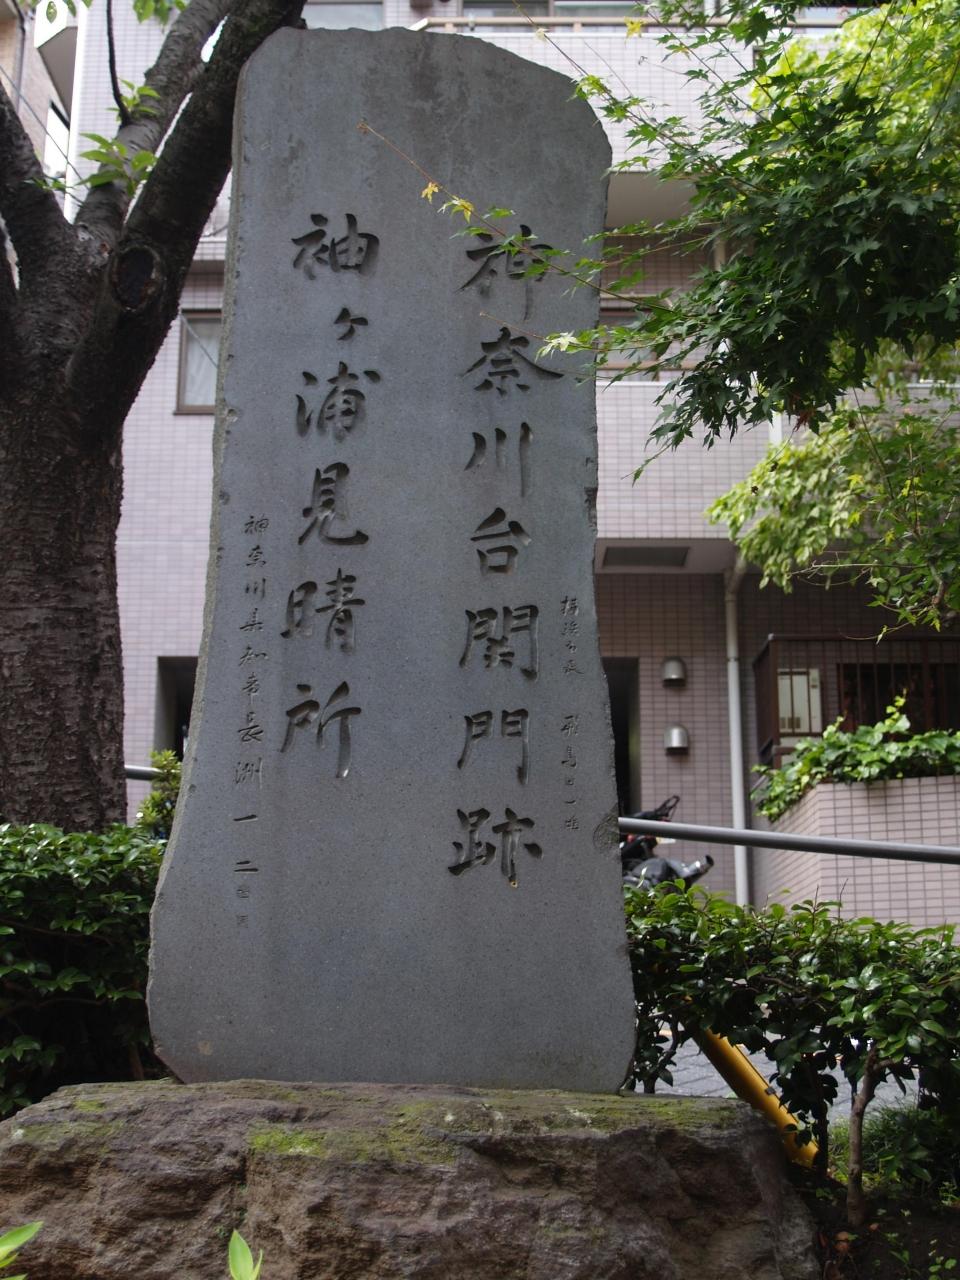 神奈川台関門跡
横浜市長 飛鳥田一雄
袖ヶ浦見晴所
神奈川県知事長洲一二